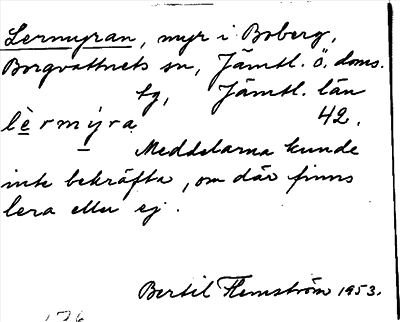 Lermyran, myr i Boberg,
Borgvattnets sn, Jämtl. ö. doms.
sg, Jämtl. län
lèrmýra 42.
Meddelarna kunde
inte bekräfta, om där finns
lera eller ej.
Bertil Flemström 1953.